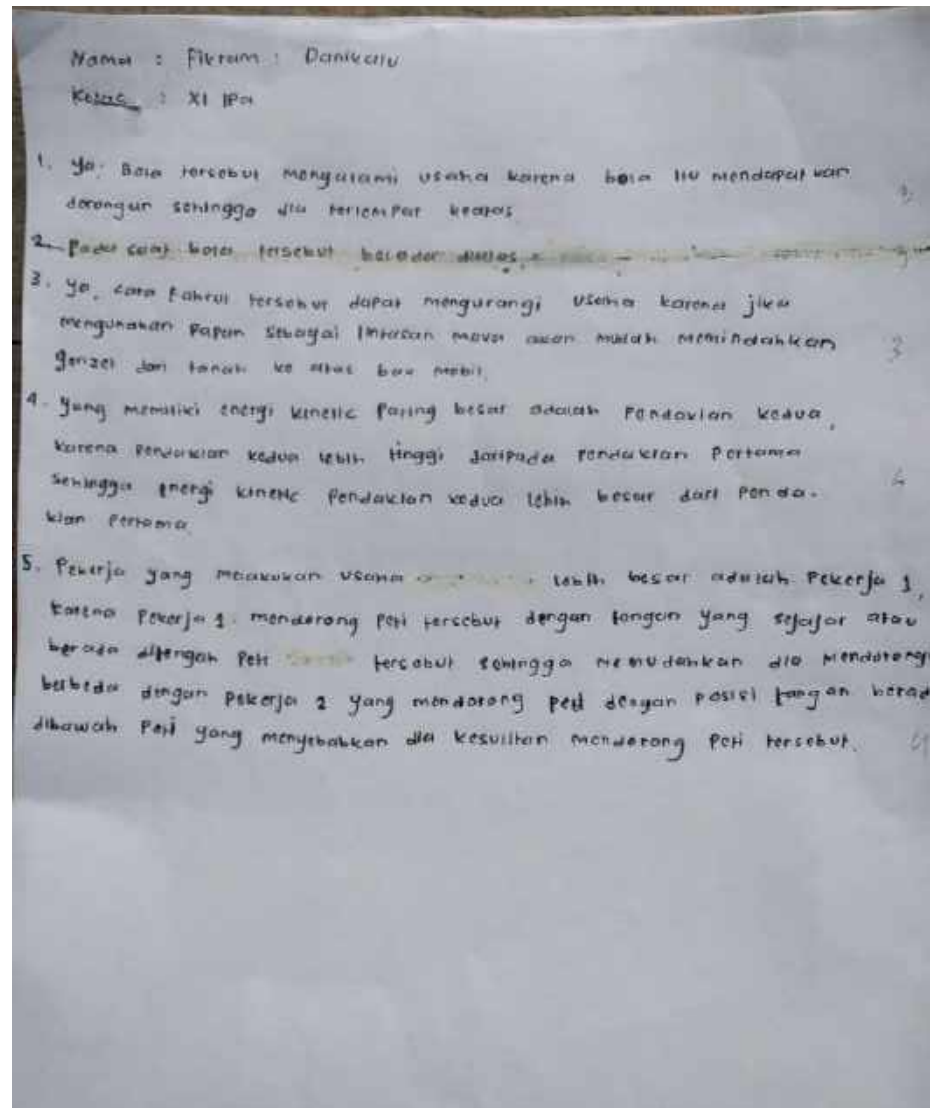 Nama : Fikram : Danikalu
Kelas : XI IPa
1. Ya. Bola tersebut mengalami usaha karena bola itu mendapatkan
dorongan sehingga dia terlempar keatas
2. Pada saat bola tersebut berada diatas
3. Ya, cara Fahrul tersebut dapat mengurangi usaha karena jika
mengunakan Papan sebagai lintasan maka akan mudah memindahkan
genzet dari tanah ke atas bak mobil.
4. Yang memiliki energi kinetic Paling besar adalah Pendakian kedua,
karena Pendakian kedua lebih tinggi daripada Pendakian Pertama
Sehingga energi kinetic Pendakian kedua lebih besar dari Penda-
kian Pertama.
5. Pekerja yang melakukan usaha lebih besar adalah Pekerja 1,
karena Pekerja 1 mendorong Peti tersebut dengan tangan yang sejajar atau
berada ditengah Peti tersebut sehingga memudahkan dia mendorong
berbeda dengan Pekerja 2 yang mendorong peti dengan posisi tangan berad
dibawah Peti yang menyebabkan dia kesulitan mendorong Peti tersebut.
3
4
4